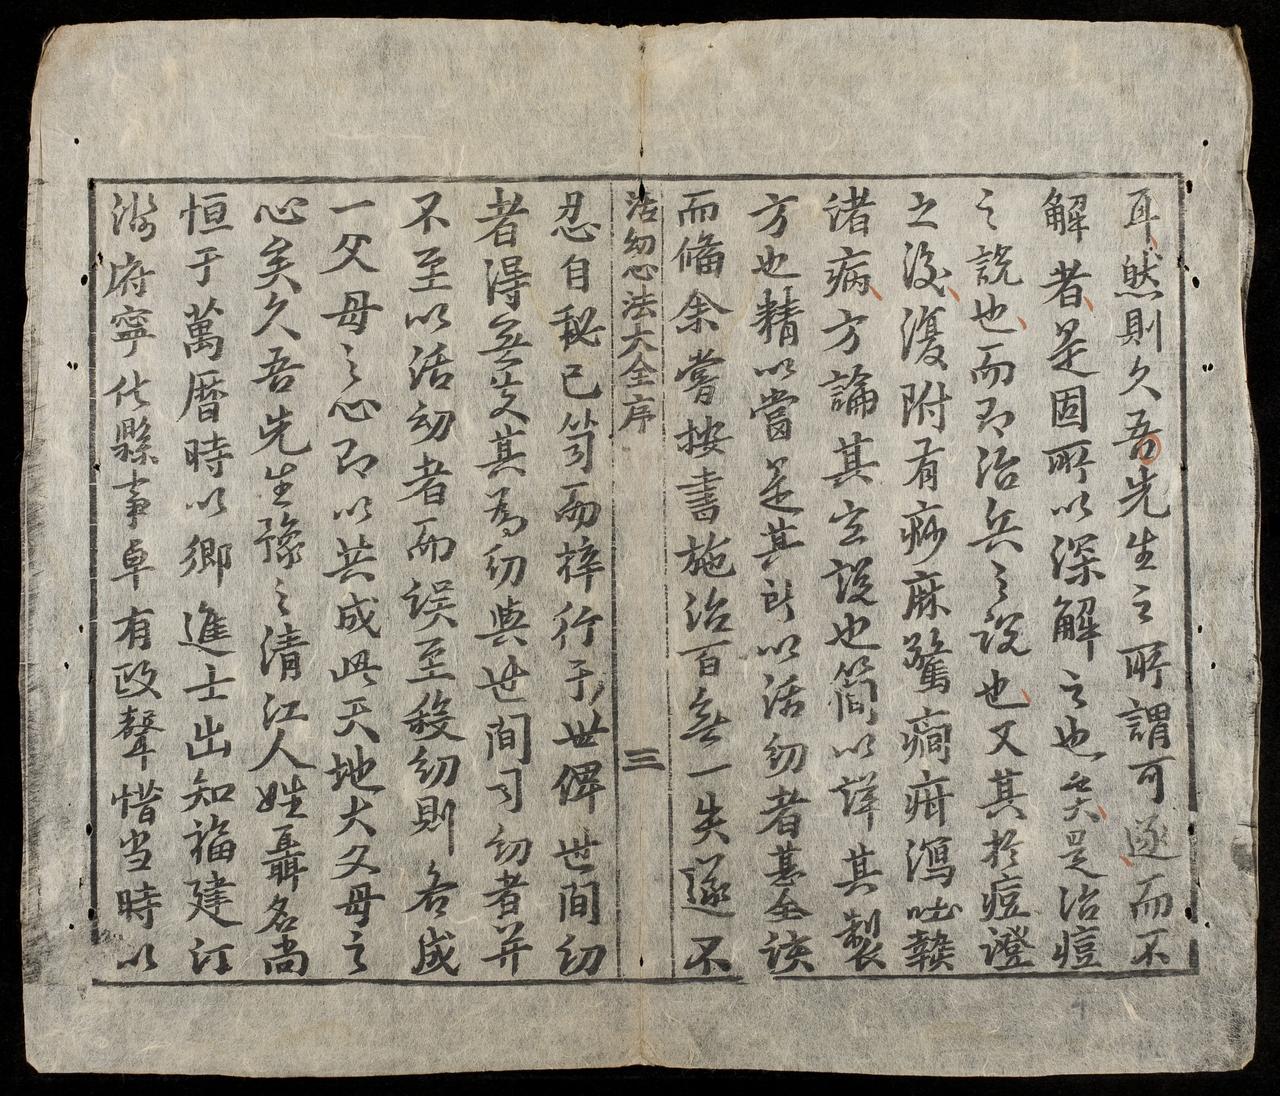 耳然則久吾先生之所謂可遂而不
解者是固所以深解之也矣是治痘
之說也而即治兵之說也又其於痘證
之後復附有痧麻驚癎疳瀉吐韓
諸病方論其立說也簡以詳其製
方也精以當是其所以活幼者甚全該
而備余嘗按書施治百無一失遂不
活幼心法大全序
三
忍自秘已笥而梓行于世俾世間幼
者得無夭其為幼與世間司幼者并
不至以活幼者而誤至殺幼則各成
一父母之心即以共成此天地大父母之
心矣久吾先生豫之清江人姓聶名尚
恒于萬曆時以鄉進士出知福建汀
洲府寧化縣事卓有政聲惜当時以